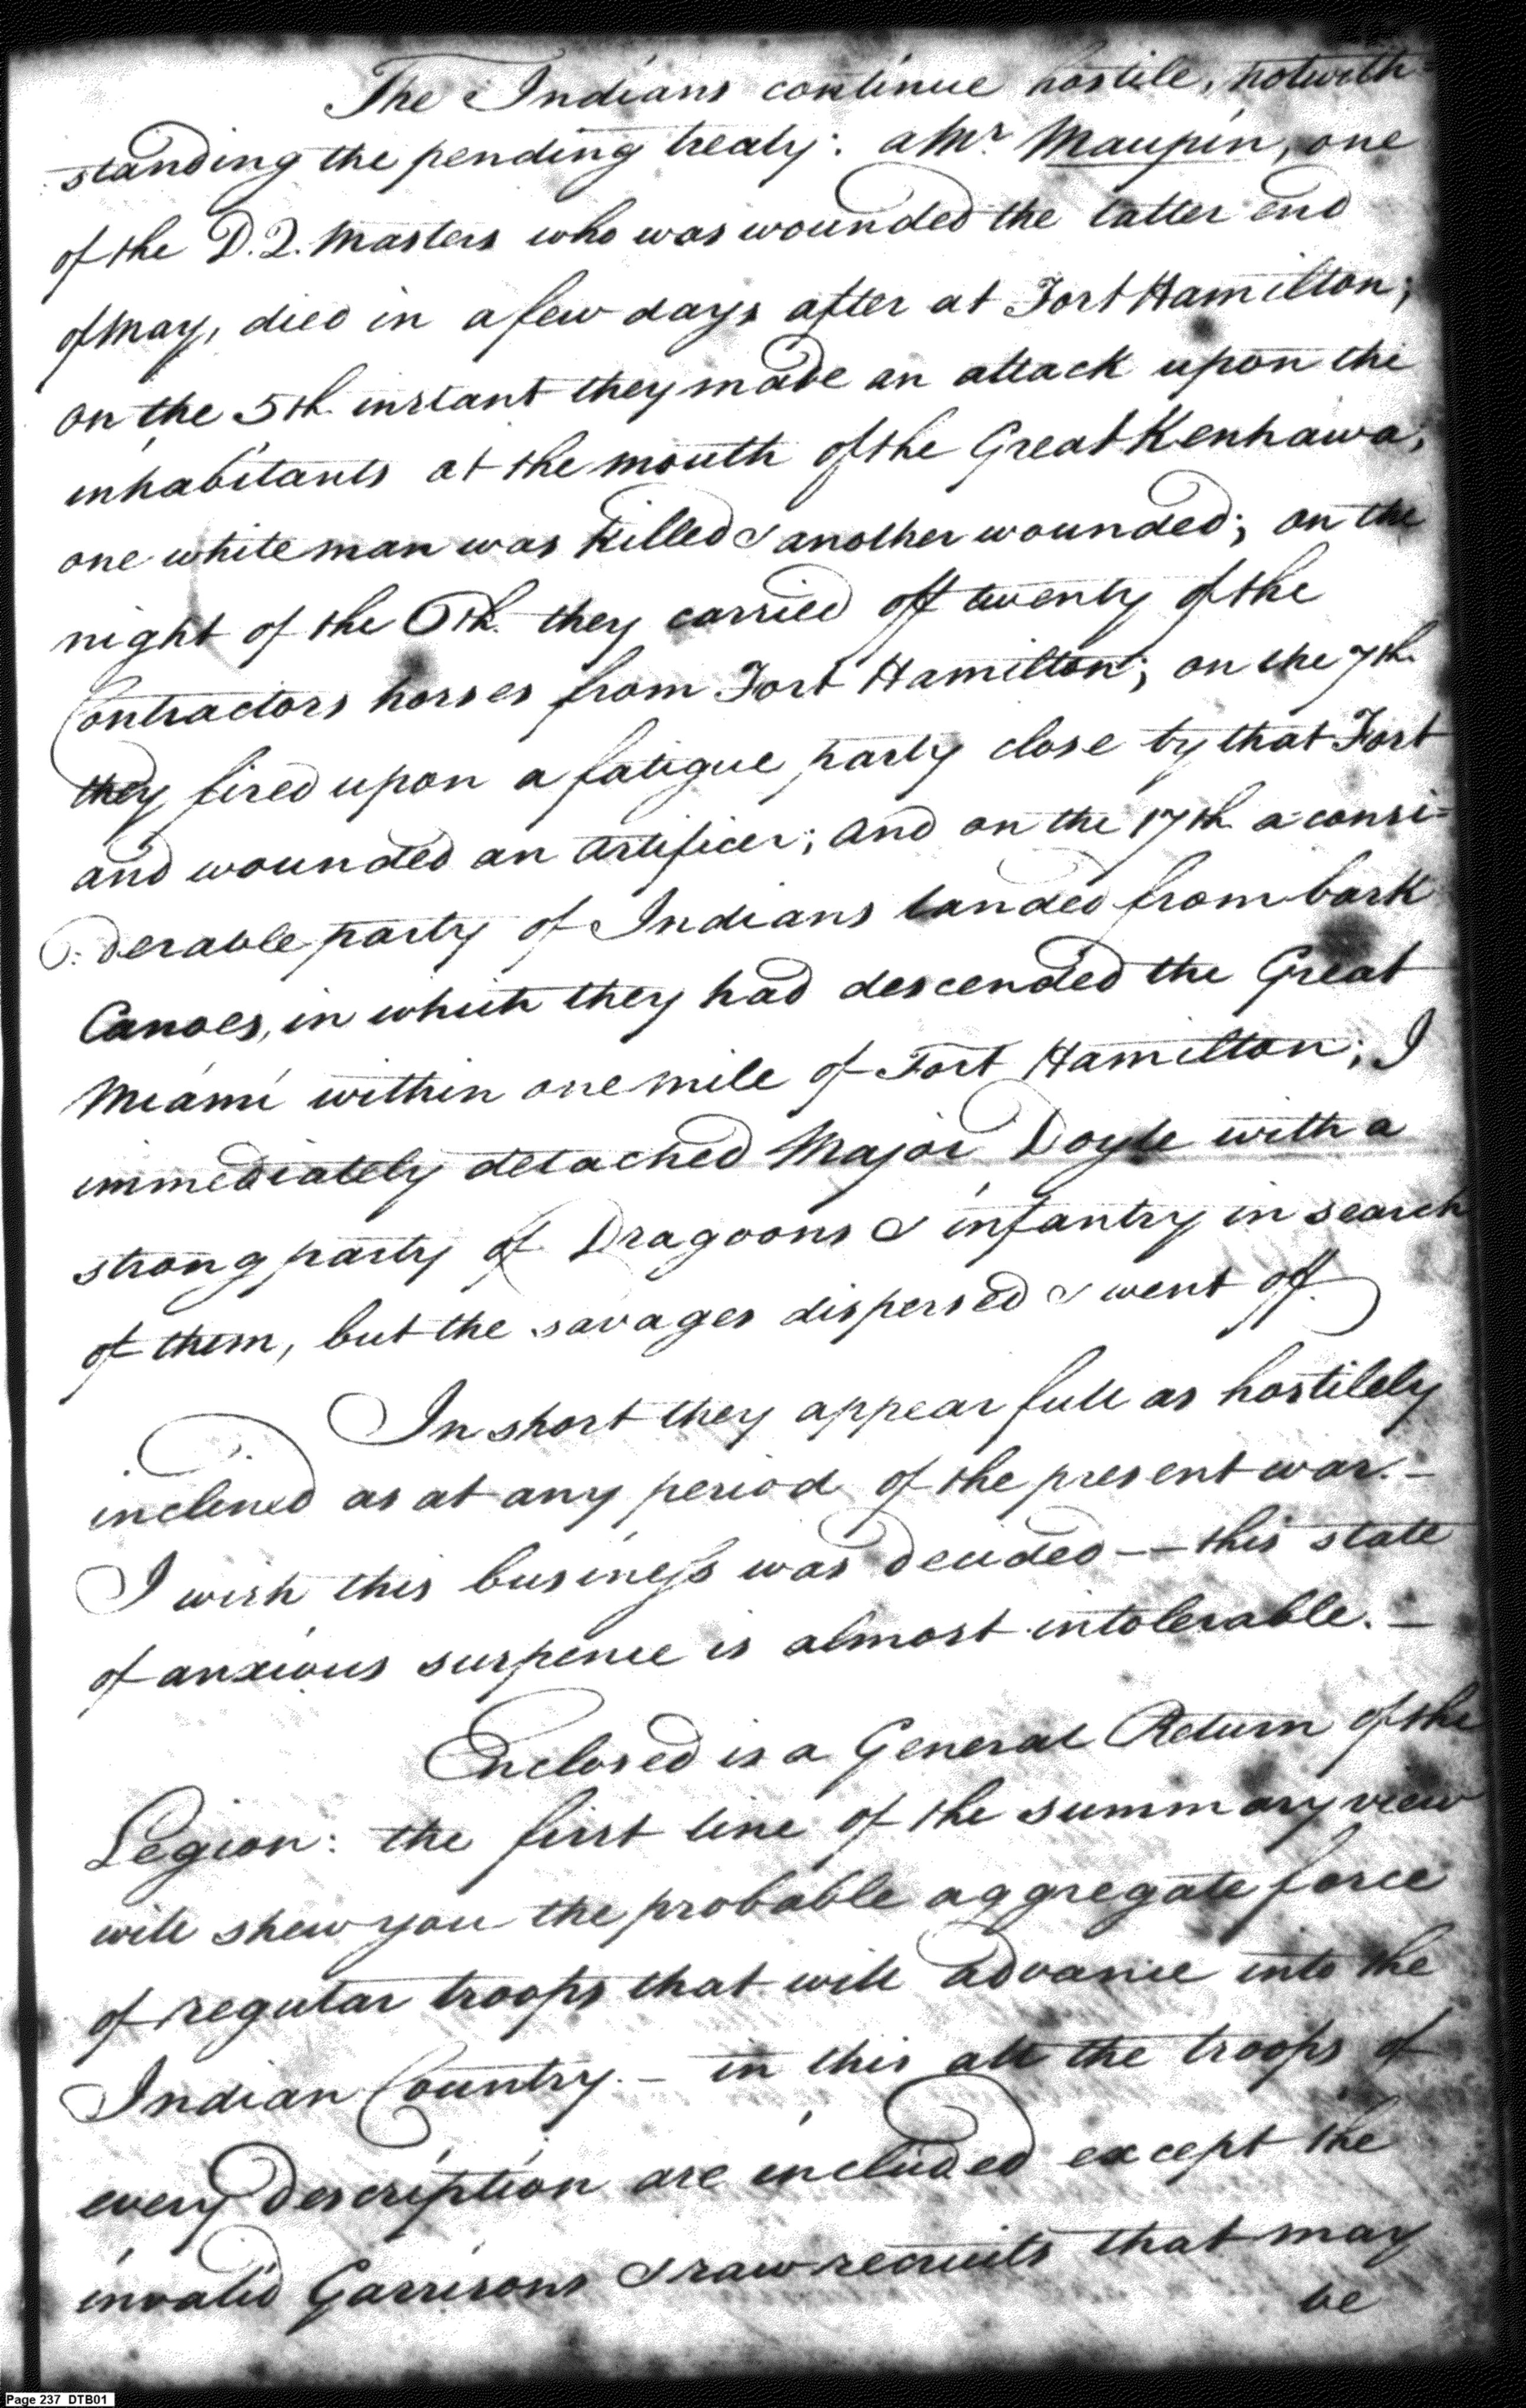 The Indians continue hostile, notwith=
standing the pending treaty: a Mr. Maupin, one
of the D. Q. Masters who was wounded the latter end
of May, died in a few days after at Fort Hamilton;
on the 5th. instant they made an attack upon the
inhabitants at the mouth of the Great Kenhawa,
one white man was killed & another wounded; on the
night of the 6th. they carried off twenty of the
Contractors horses from Fort Hamilton; on the 7th.
they fired upon a fatigue party close by that Fort
and wounded an artificer; and on the 17th. a consi=
:derable party of Indians landed from bark
Canoes, in which they had descended the Great
Miami within one mile of Fort Hamilton; I
immediately detached Major Doyle with a
strong party of Dragoons & infantry in search
of them, but the savages dispersed & went off.
In short they appear full as hostilely
inclined as at any period of the present war.—
I wish this business was decided—— this state
of anxious suspence is almost intolerable.—
Enclosed is a General Return of the
Legion: the first line of the summary view
will shew you the probable aggregate force
of regular troops that will advance into the
Indian Country.— in this all the troops of
every description are included except the
invalid Garrisons & raw recruits that may
be
Page 237 DTB01